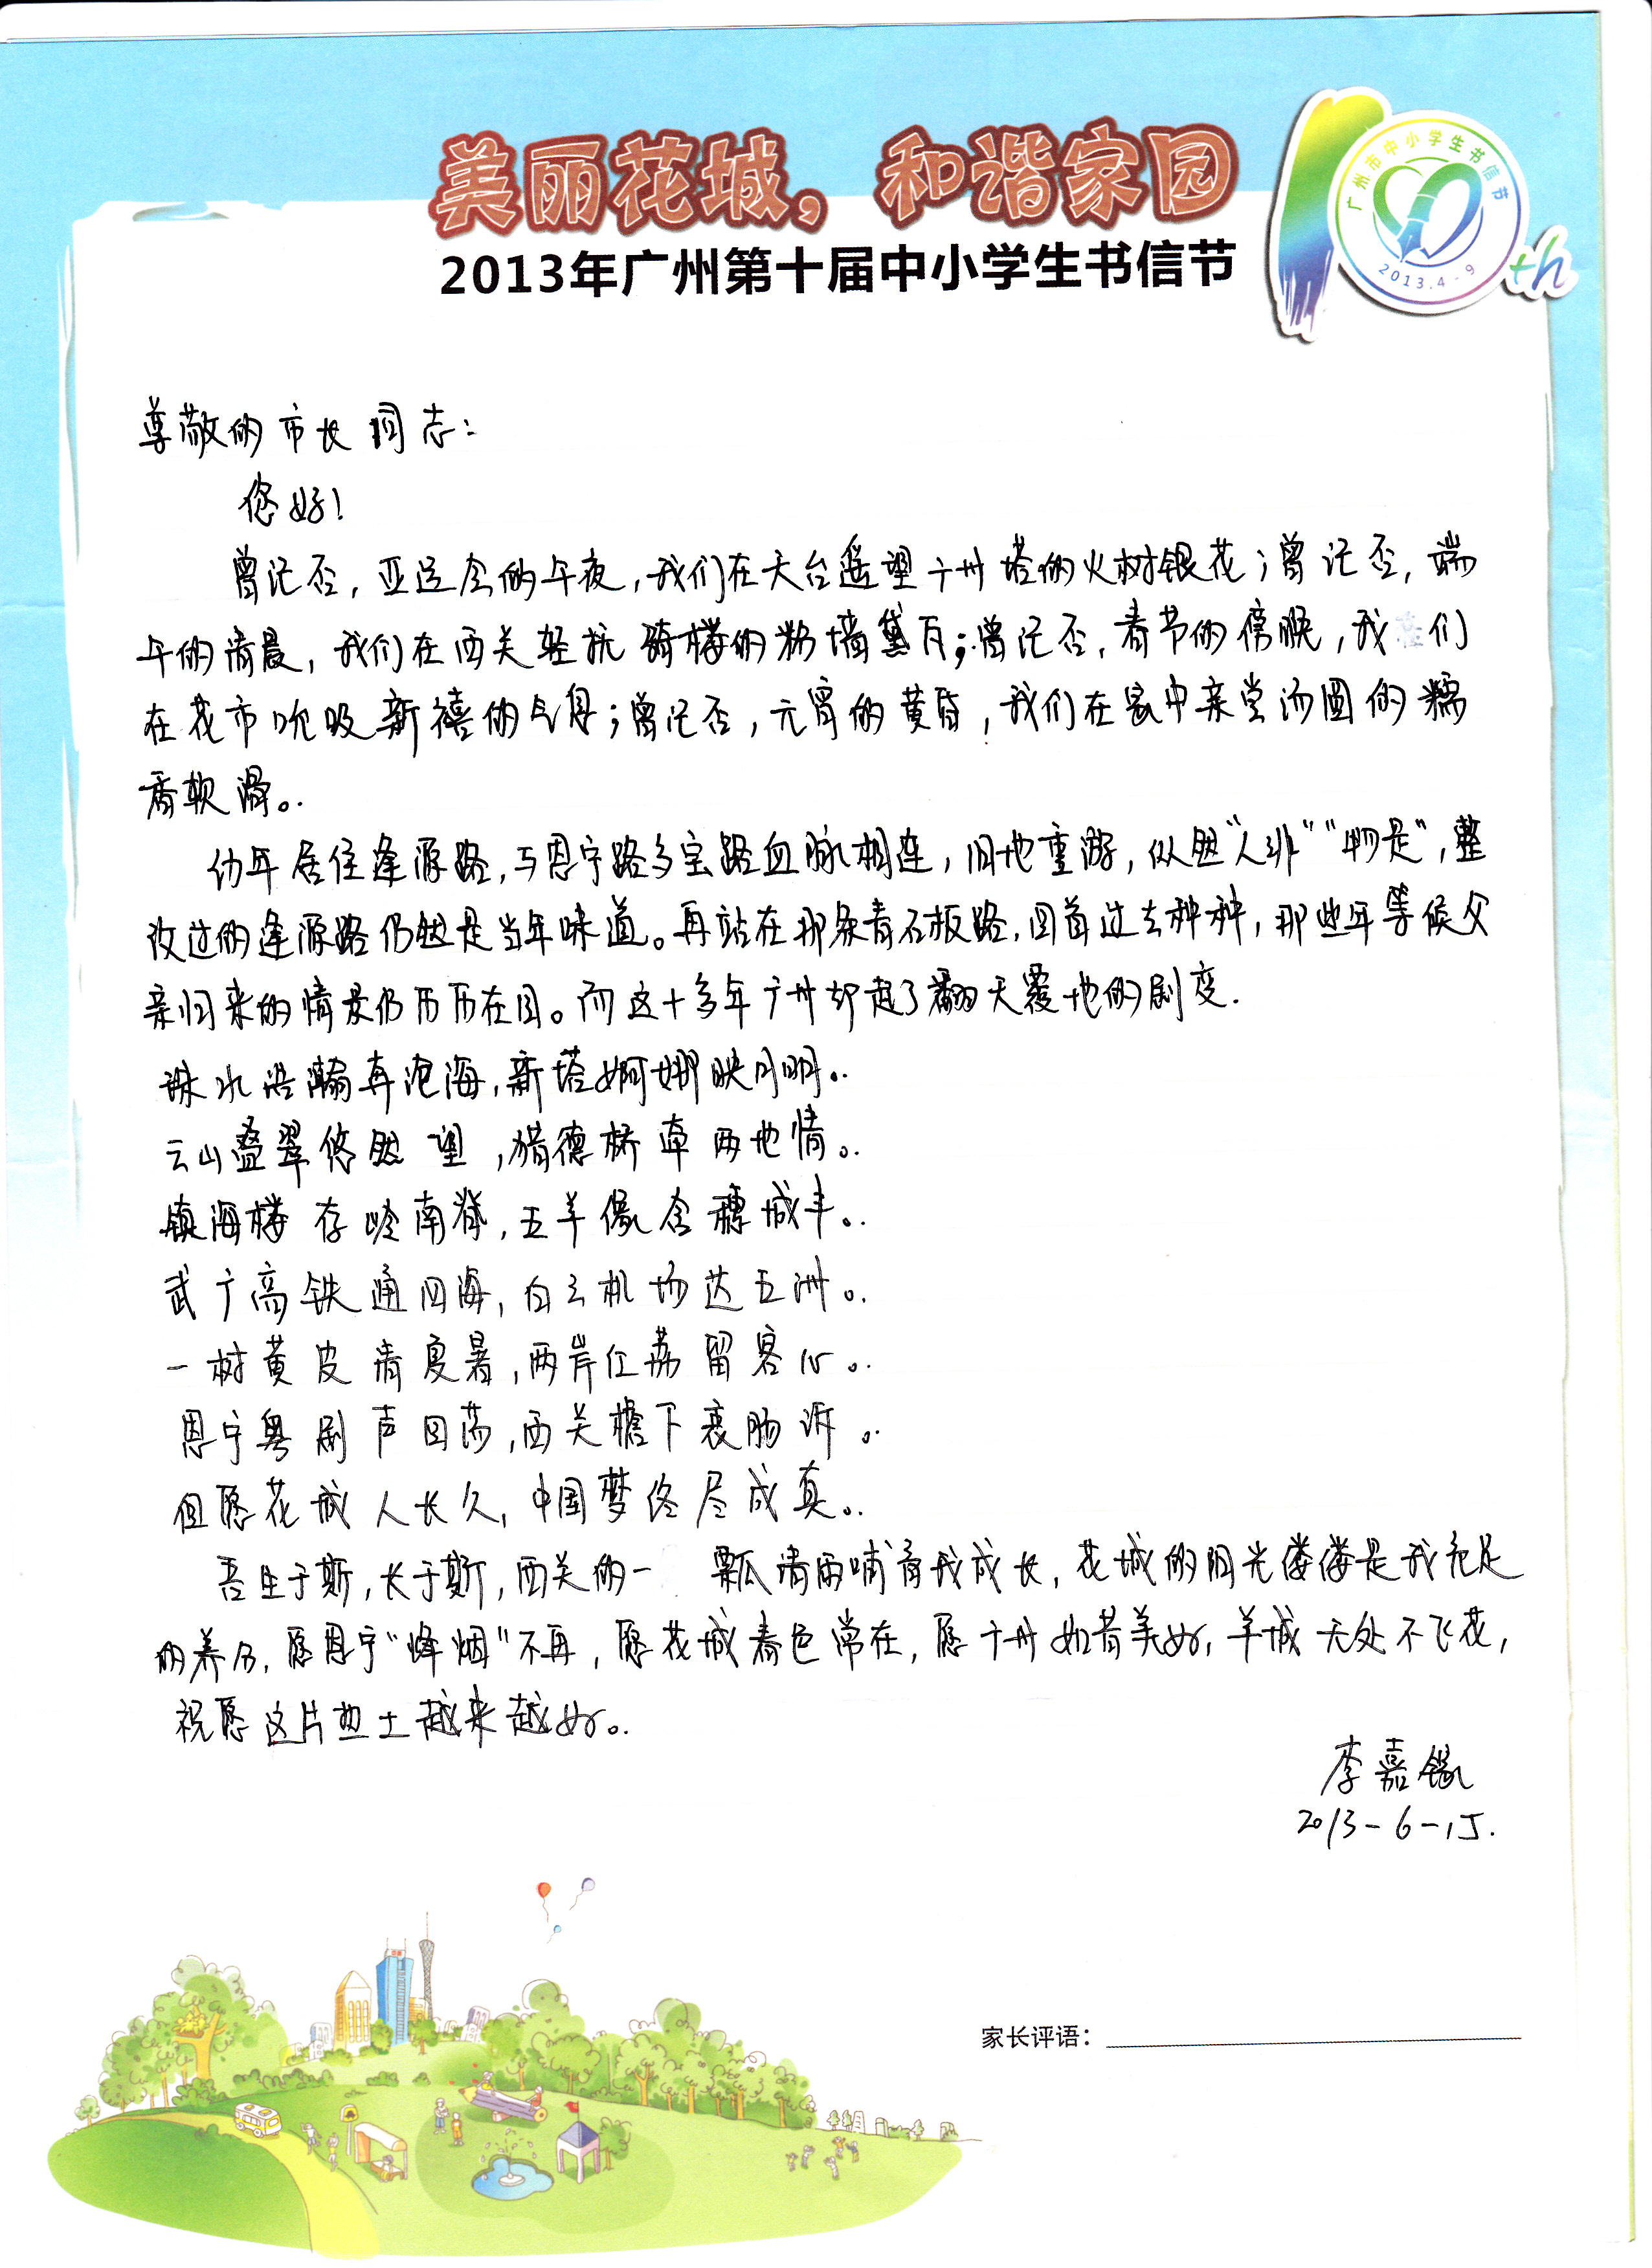 美丽花城，和谐家园
2013年广州第十届中小学生书信节
广州市中小学生书信节
2013.4-9
th
尊敬的市长同志：
您好！
曾记否，亚运会的午夜，我们在天台遥望广州塔的火树银花；曾记否，端
午的清晨，我们在西关轻抚骑楼的粉墙黛瓦；曾记否，春节的傍晚，我们
在花市吮吸新禧的气息；曾记否，元宵的黄昏，我们在家中亲尝汤圆的糯
香软滑。
幼年居住逢源路，与恩宁路多宝路血脉相连，旧地重游，纵然“人非”“物是”，整
改过的逢源路仍然是当年味道。再站在那条青石板路，回首过去种种，那些年等候父
亲归来的情景仍历历在目。而这十多年广州却起了翻天覆地的剧变.
珠水浩瀚奔沧海，新塔婀娜映月明。
云山叠翠悠然望，猎德桥牵两地情。
镇海楼存岭南脊，五羊像含穗城丰。
武广高铁通四海，白云机场达五洲。
一树黄皮清夏暑，两岸红荔留客心。
恩宁粤剧声回荡，西关檐下衷肠诉。
但愿花城人长久，中国梦终尽成真。
吾生于斯，长于斯，西关的一瓢清雨哺育我成长，花城的阳光偻偻是我充足
的养分，愿恩宁“烽烟”不再，愿花城春色常在，愿广州如昔美好，羊城无处不飞花，
祝愿这片热土越来越好。
李嘉
2013-6-15.
家长评语：